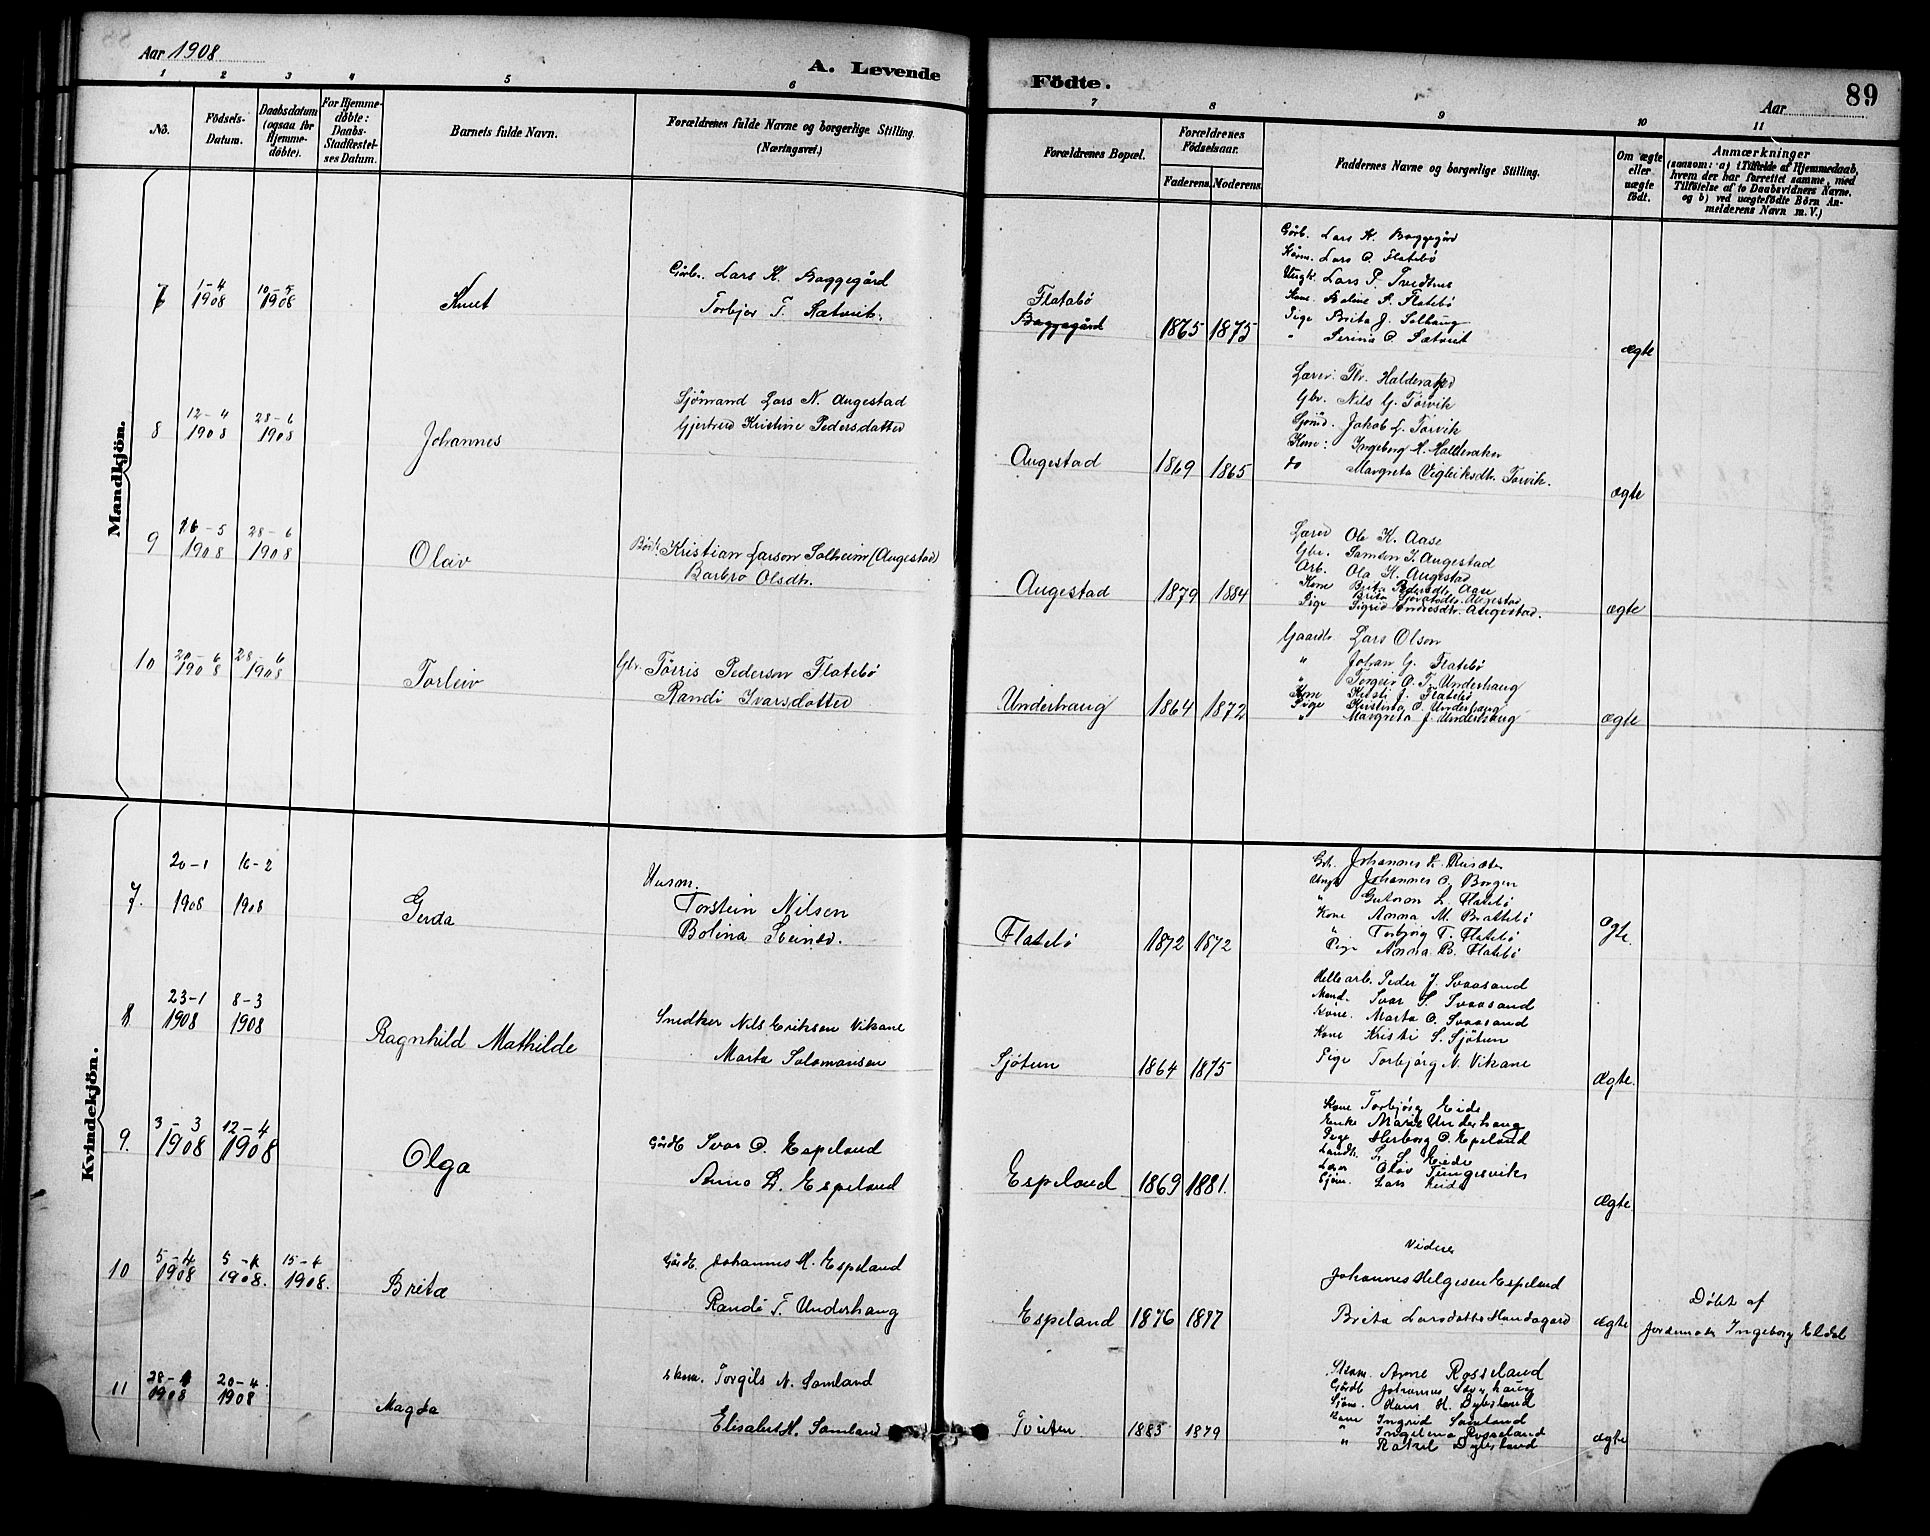 Aar 1908
A. Levende Födte.
Aar
89
1 2 3 4 5 6 7 8 9 10 11
No.
Födsels-Datum.
Daabsdatum (ogsaa for Hjemme-döbte).
For Hjemme-döbte: Daabs-Stadfæstel-ses Datum.
Barnets fulde Navn.
Forældrenes fulde Navne og borgerlige Stilling. (Næringsvei.)
Forældrenes Bopæl.
Forældrenes Födselsaar.
Faderens. Moderens.
Faddernes Navne og borgerlige Stilling.
Om ægte eller uægte födt.
Anmærkninger
(saasom: a) i Tilfælde af Hjemmedaab, hvem der har forrettet samme, med Tilföielse af to Daabsvidners Navne, og b) ved uægtefödte Börn An-melderens Navn m. V.)
Mandkjön.
7 1-4 1908 10-5 1908 Knut
Gårb. Lars K. Baggegård
Torbjor T. Sætveit.
Flatabø
Baggegård 1865 1875
Gårb. Lars H. Baggegård
Kårm. Lars O. Flatebö
Ungk. Lars P. Tvedtnes
Kone Boline S. Flatebö
Pige Brita J. Solhaug
" Serina O. Sætveit
ægte
8 12-4 1908 28-6 1908 Johannes
Sjömand Lars N. Augestad
Gjertrud Kristine Pedersdatter
Augestad 1869 1865
Lærer Th. Halderaker
Gbr. Nils G. Torvik
Sjömd. Jakob L. Torvik
Kone: Ingeborg H. Halderaker
do Margreta Vigleiksdtr. Torvik.
ægte
9 16-5 1908 28-6 1908 Olav
Kristian Larson Solheim (Augestad)
Barbro Olsdtr.
Augestad 1879 1884
Lærer Ole K. Aase
Gbr. Samson I. Augestad
Arb. Ola K. Augestad
Kone Brita Pedersdtr. Aase
Pige Sigrid Endresdtr. Augestad.
ægte
10 20-6 1908 28-6 1908 Torleiv
Gbr. Törris Pederson Flatebö
Randi Ivarsdatter
Underhaug 1864 1872
Gaardb Lars Olson
" Johan G. Flatebö
" Torgeir O. T. Underhaug
Kone Kristi J. Flatebö
Pige Kristina O. Underhaug
" Margreta J. Underhaug
ægte
Kvindekjön.
7. 20-1 1908 16-2 1908 Gerda
Husm.
Torstein Nilsen
Bolina Steinsd.
Flatebö 1872 1872
Johannes O. Borgen
" Guttorm L. Flatebö
Kone Anna M. Brattebö
" Torbjörg T. Flatebö
Pige Anna B. Flatebö
Ægte.
8 23-1 1908 8-3 1908 Ragnhild Mathilde
Snedker Nils Eriksen Vikane
Marta Salomonsen
Sjötun 1864 1875
Hellearb. Peder J. Svaasand
Mand. Ivar S. Svaasand
Kone. Marta O. Svaasand
Kone Kristi S. Sjötun
Pige Torbjörg N. Vikane
Ægte.
9. 3-3 1908 12-4 1908 Olga
Gårdb Ivar O. Espeland
Anna L. Espeland
Espeland 1869 1881.
Kone Torbjörg Eide
Enke Marie Underhaug
Pige Herborg O. Espeland
Landh. S. S. Eide
Lærer Olav Tungesvik
Sjöm. Lars Eide
Ægte.
10 5-4 1908 5-4 1908. 15-6 1908. Brita
Gårdb. Johannes H. Espeland
Randi T. Underhaug
Espeland 1876 1877
Videre
Johannes Helgesen Espeland
Brita Larsdatter Handagard
ægte
Döbt af
Jordemoder Ingeborg Eldal
11 28-1 1908 20-4 1908 Magda
Torgils N. Samland
Elisabet H. Samland
Tveiten 1885 1879
Arne Rosseland
Gårdb Johannes
Sjöm. Hans H. Dybsland
Kone Ingrid Samland
" Ingelina Rosseland
" Rakel Dybsland
ægte